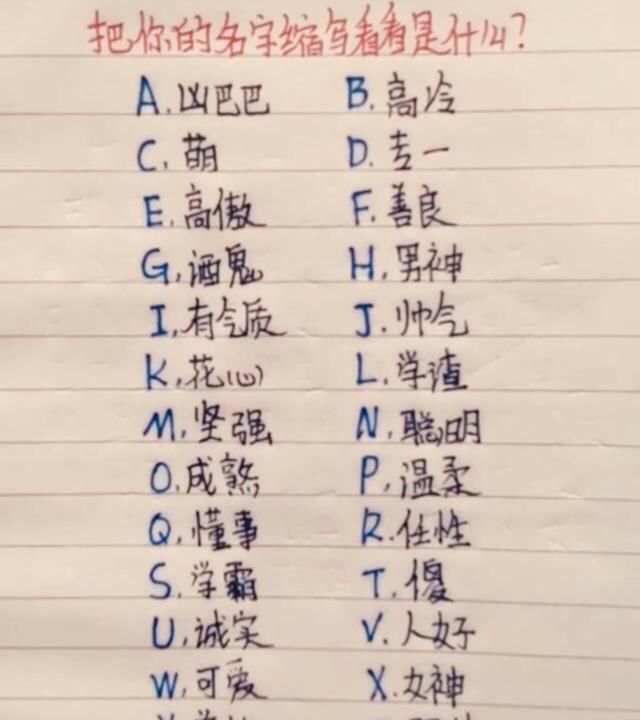 把你的名字缩写看看是什么?
A.凶巴巴 B.高冷
C.萌 D.专一
E.高傲 F.善良
G.酒鬼 H.男神
I.有气质 J.帅气
K.花心 L.学渣
M.坚强 N.聪明
O.成熟 P.温柔
Q.懂事 R.任性
S.学霸 T.傻
U.诚实 V.人好
W.可爱 X.女神